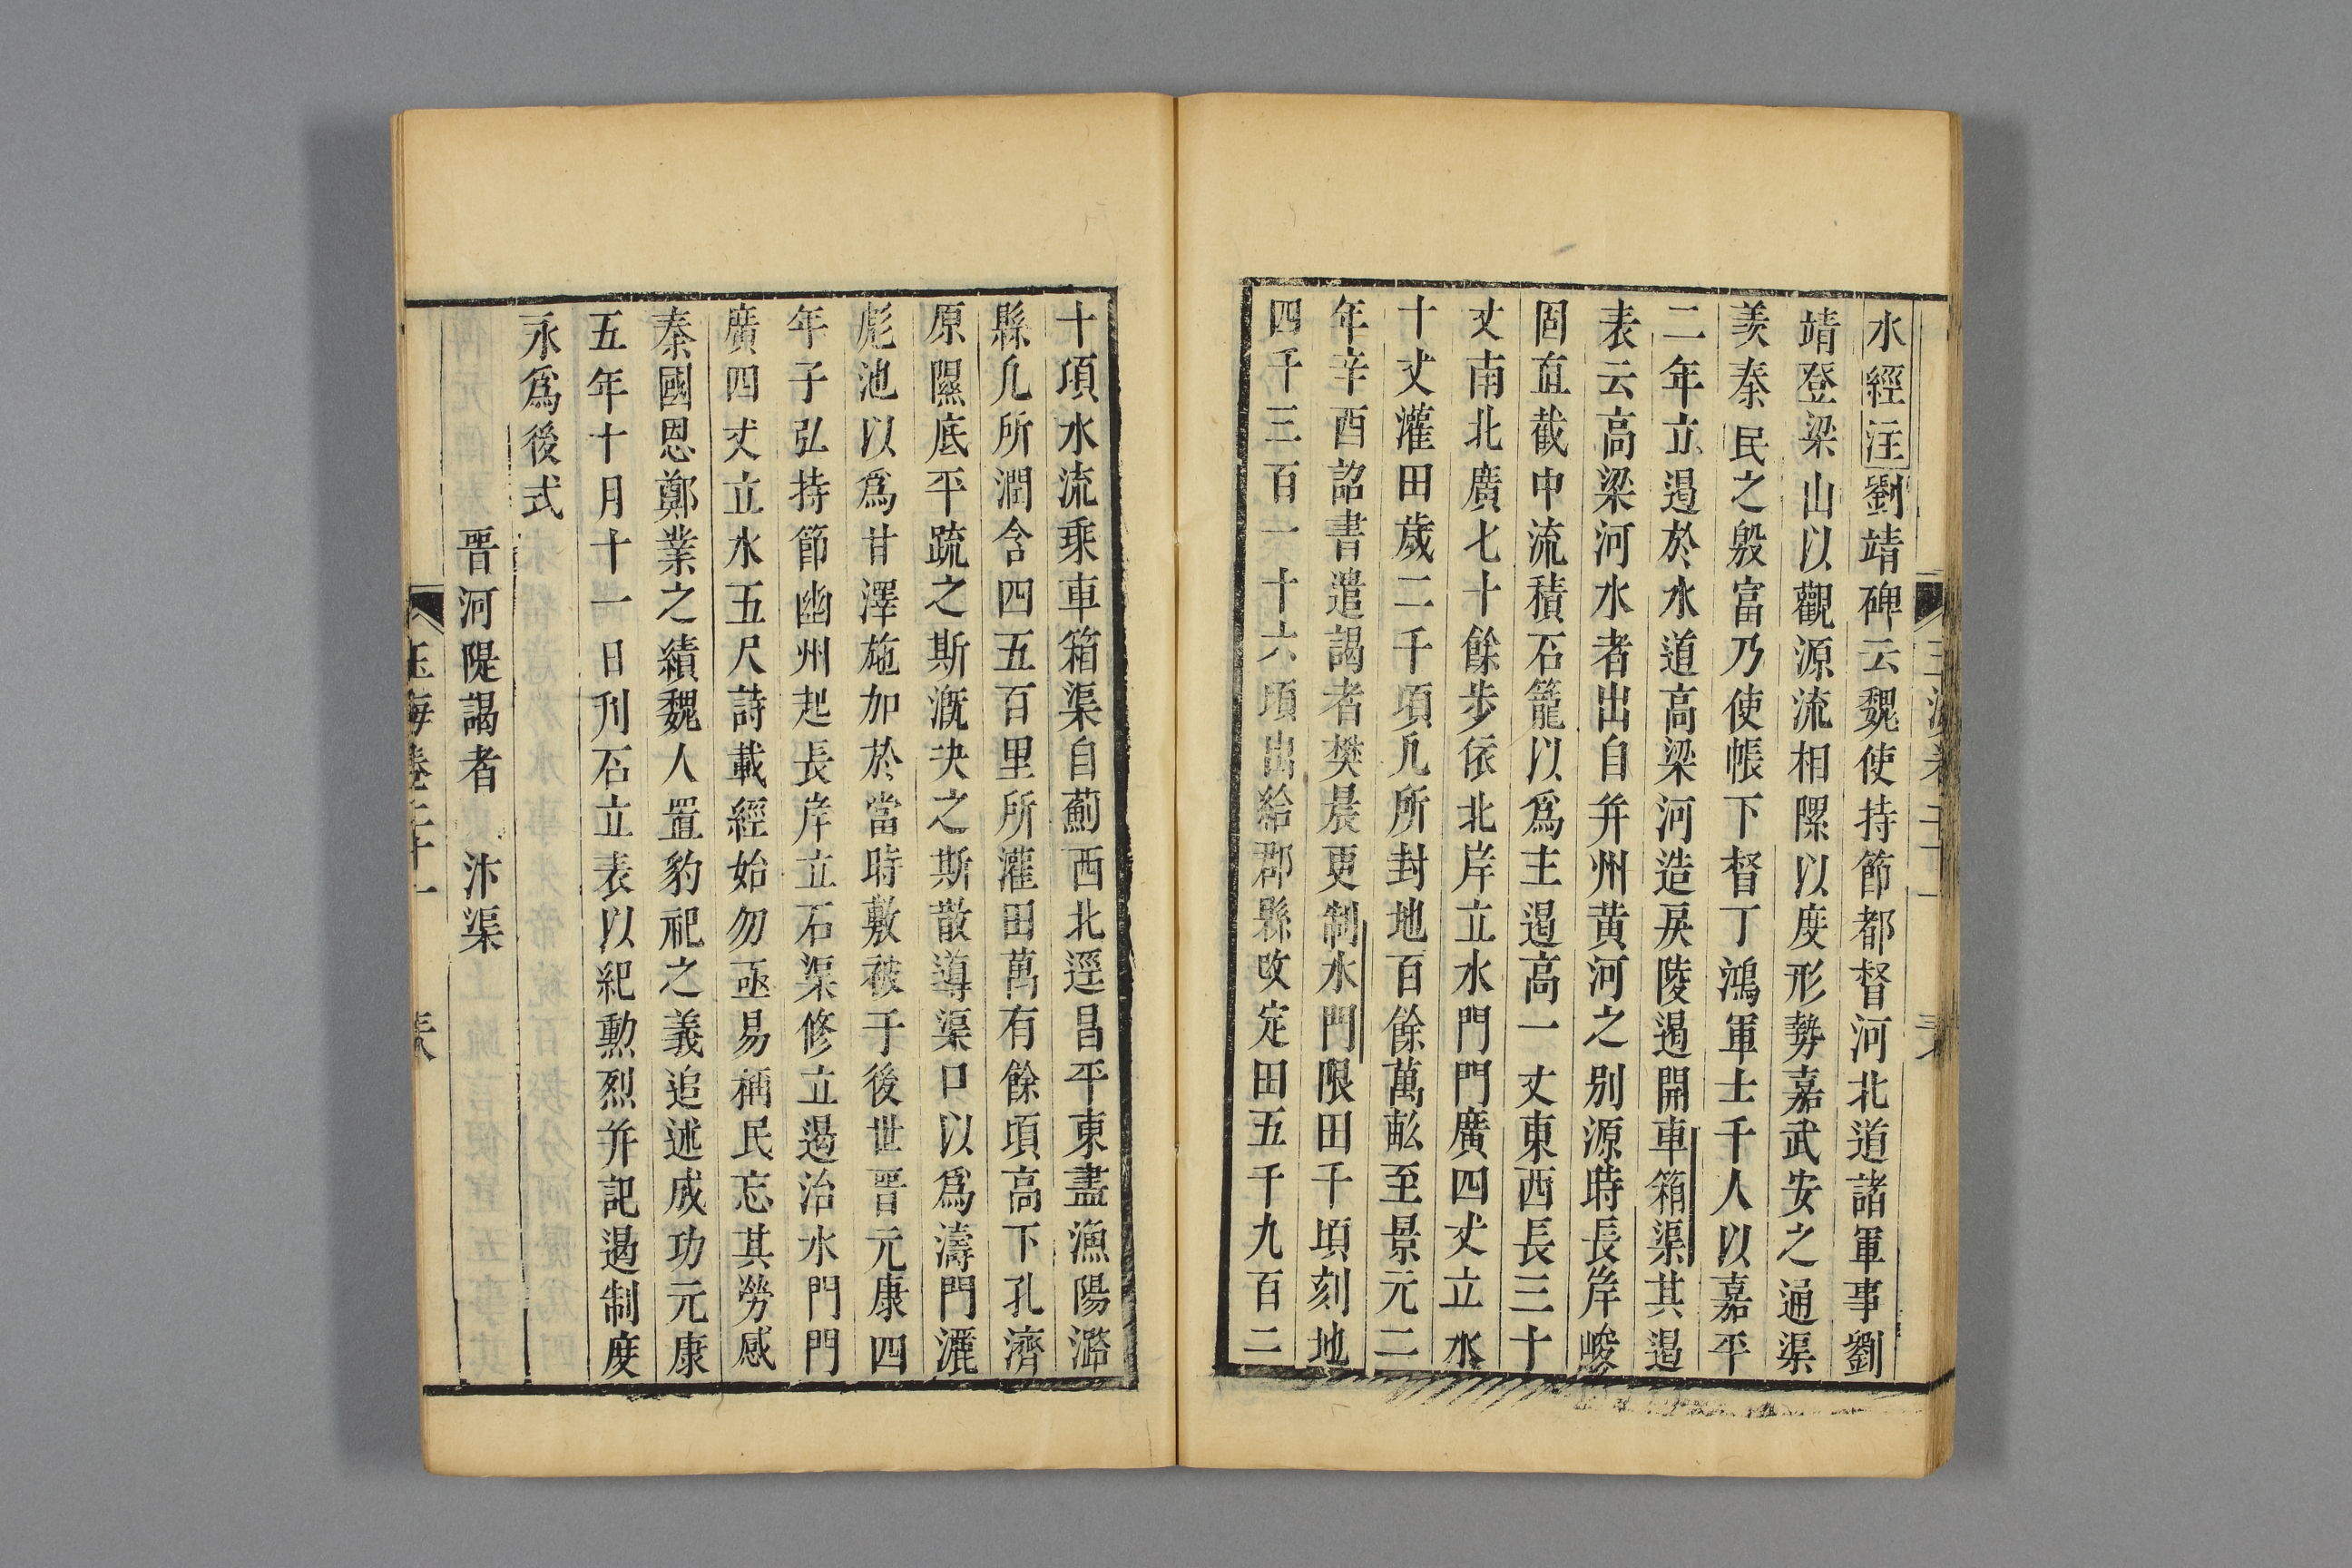 水經注劉靖碑云魏使持節都督河北道諸軍事劉
靖登梁山以觀源流相隰以度形勢嘉武安之通渠
羨秦民之殷富乃使帳下督丁鴻軍士千人以嘉平
二年立遏於水道高梁河造戾陵遏開車箱渠其遏
表云高梁河水者出自并州黄河之别源時長岸峻
固直截中流積石籠以爲主遏高一丈東西長三十
丈南北廣七十餘步依北岸立水門門廣四丈立水
十丈灌田歲二千頃凡所封地百餘萬畝至景元二
年辛酉詔書遣謁者樊晨更制水門限田千頃刻地
四千三百一十六頃出給郡縣改定田五千九百二
十頃水流乘車箱渠自薊西北逕昌平東盡漁陽潞
縣凡所潤含四五百里所灌田萬有餘頃高下孔濟
原隰底平疏之斯溉決之斯散導渠口以爲濤門灑
彪池以爲甘澤施加於當時敷被于後世晉元康四
年子弘持節幽州起長岸立石渠修立遏治水門門
廣四丈立水五尺詩載經始勿亟易稱民忘其勞感
秦國思鄭業之績魏人置豹祀之義追述成功元康
五年十月十一日刋石立表以紀勲烈并記遏制度
永爲後式
晉河隄謁者　汴渠
玉海卷二十一